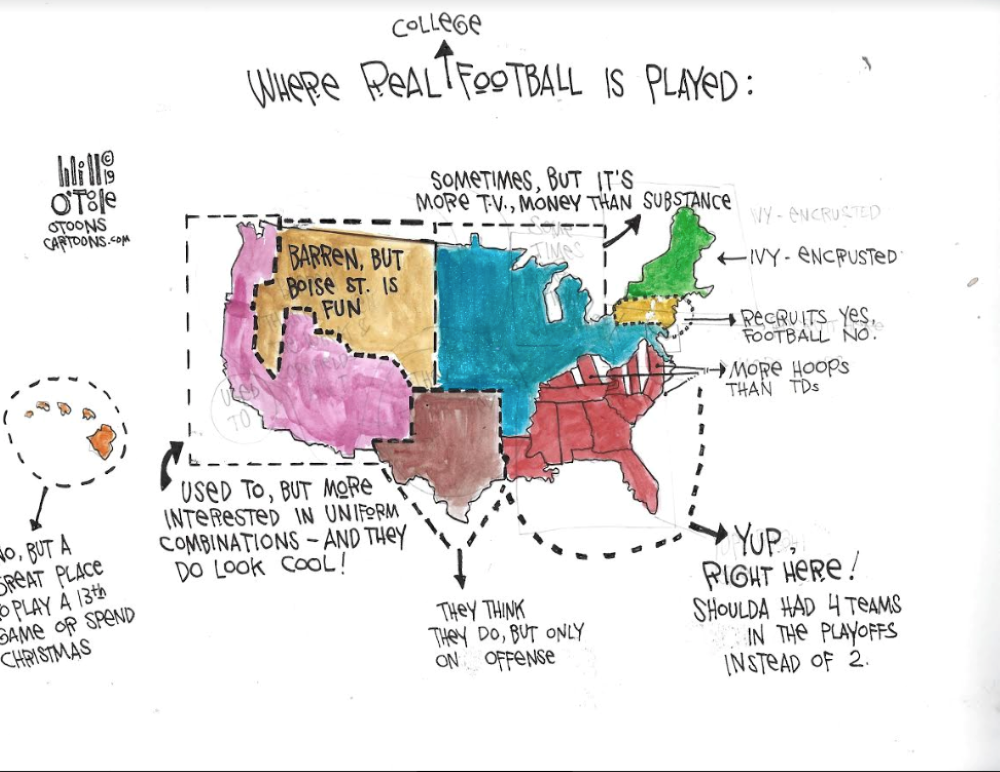 COLLEGE
WHERE REAL FOOTBALL IS PLAYED:
Will ©
19
O'Toole
OTOONS
CARTOONS.COM
SOMETIMES, BUT IT'S
MORE T.V., MONEY THAN SUBSTANCE
SOME
TIMES
IVY-ENCRUSTED
IVY-ENCRUSTED
BARREN, BUT
BOISE ST. IS
FUN
RECRUITS YES,
FOOTBALL NO.
MORE HOOPS
THAN TDs
USED
TO
USED TO, BUT MORE
INTERESTED IN UNIFORM
COMBINATIONS - AND THEY
DO LOOK COOL!
NO, BUT A
GREAT PLACE
TO PLAY A 13th
GAME OR SPEND
CHRISTMAS
THEY THINK
THEY DO, BUT ONLY
ON OFFENSE
YUP,
RIGHT HERE!
SHOULDA HAD 4 TEAMS
IN THE PLAYOFFS
INSTEAD OF 2.